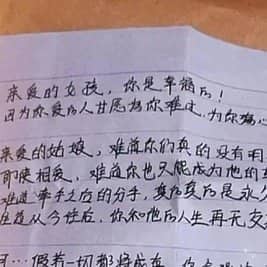 亲爱的女孩，你是幸福的！
因为你爱的人甘愿为你难过，为你痛心
亲爱的姑娘，难道你们真的没有明
即使相爱，难道你也只能成为他的
难道牵手之后的分手，真的真的是永
注定从今往后，你和他的人生再无交
…假若一切都将成灰，你